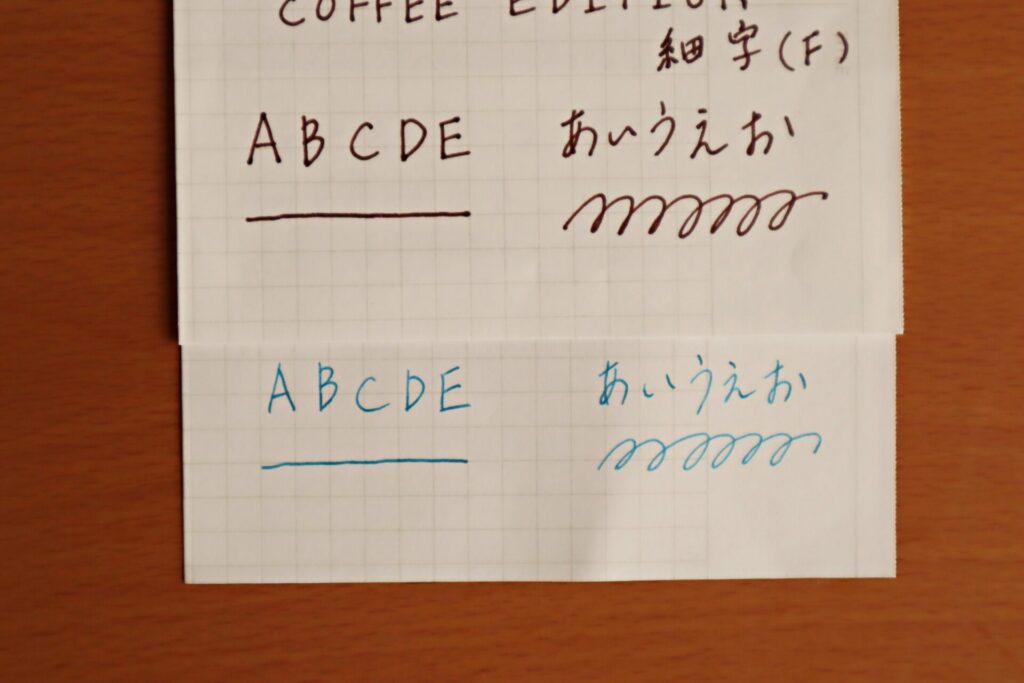 COFFEE EDITION
細字(F)
ABCDE あいうえお
ABCDE あいうえお